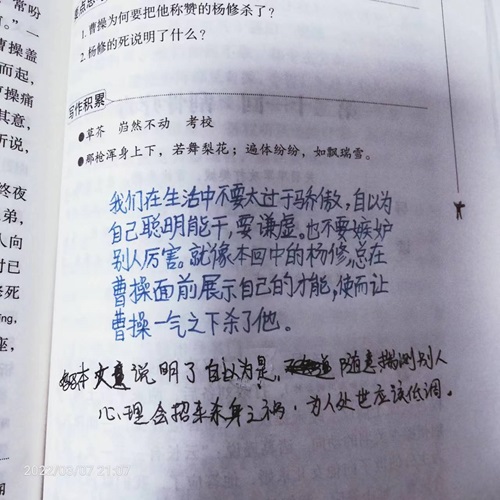 常吩
”一
曹操盖
而起，
操痛
其意，
听说，
终夜
兄弟，
人向
时已
死
ing,
座，
1.曹操为何要把他称赞的杨修杀了？
2.杨修的死说明了什么？
写作积累
●草芥 岿然不动 考校
●那枪浑身上下，若舞梨花；遍体纷纷，如飘瑞雪。
我们在生活中不要太过于骄傲，自以为
自己聪明能干，要谦虚。也不要嫉妒
别人厉害。就像本回中的杨修，总在
曹操面前展示自己的才能，使而让
曹操一气之下杀了他。
本文意说明了自以为是，随意揣测别人
心理会招来杀身之祸，为人处世应该低调。
2022/09/07 21:07